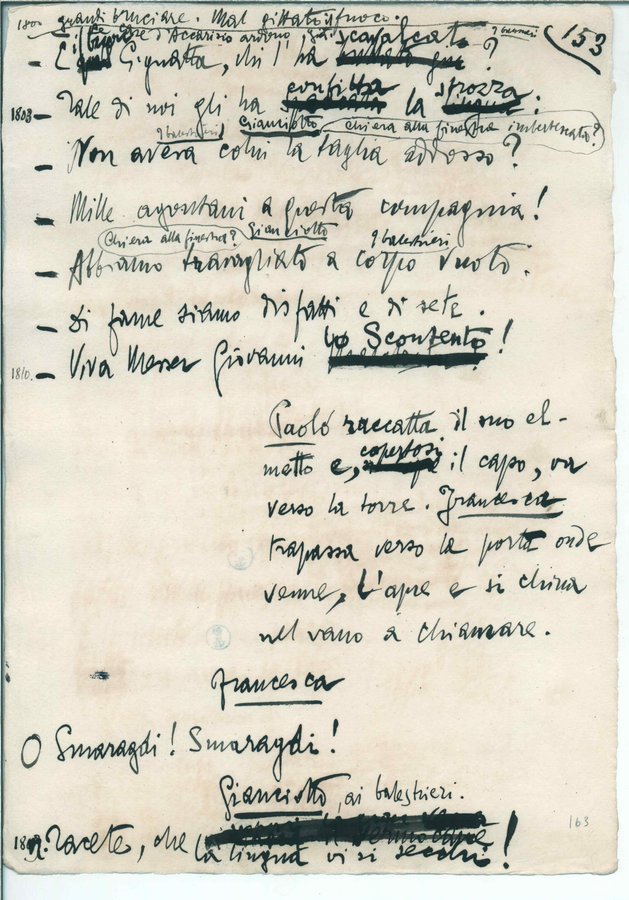 1800 granti bruciare.
153
E Gignatta, chi l'ha scavalcato?
1803 - Tale di noi gli ha confitta la strozza.
Gianciotto
i balestrieri
- Non avera colui la taglia addosso?
- Mille agontani a questa compagnia!
Chiera alla finestra? Gianciotto
i balestrieri
- Abbiamo travagliato a corpo vuoto.
- Di fame siamo disfatti e di sete.
1810. - Viva Messer Giovanni lo Scontento!
Paolo raccatta il suo el-
metto e, copertosi il capo, va
verso la torre. Francesca
trapassa verso la porta onde
venne, l'apre e si china
nel vano a chiamare.
Francesca
O Smaragdi! Smaragdi!
Gianciotto, ai balestrieri.
Tacete, che
la lingua vi si secchi!
163